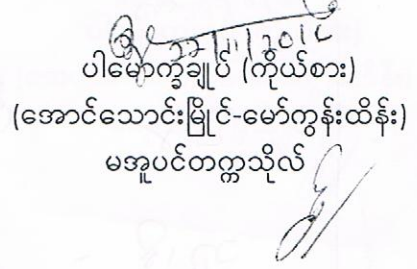 ပါမောက္ခချုပ် (ကိုယ်စား)
(အောင်သောင်းမြိုင်-မော်ကွန်းထိန်း)
မအူပင်တက္ကသိုလ်